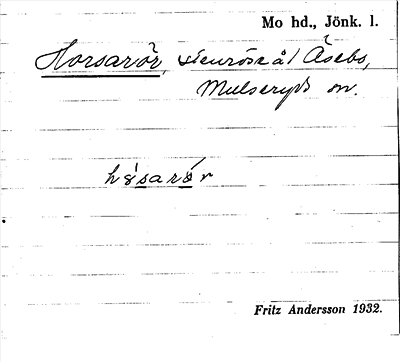 Mo hd., Jönk. l.
Horsarör, stenröse å Åsebo,
Mulseryds sn.
hòsarö́r
Fritz Andersson 1932.